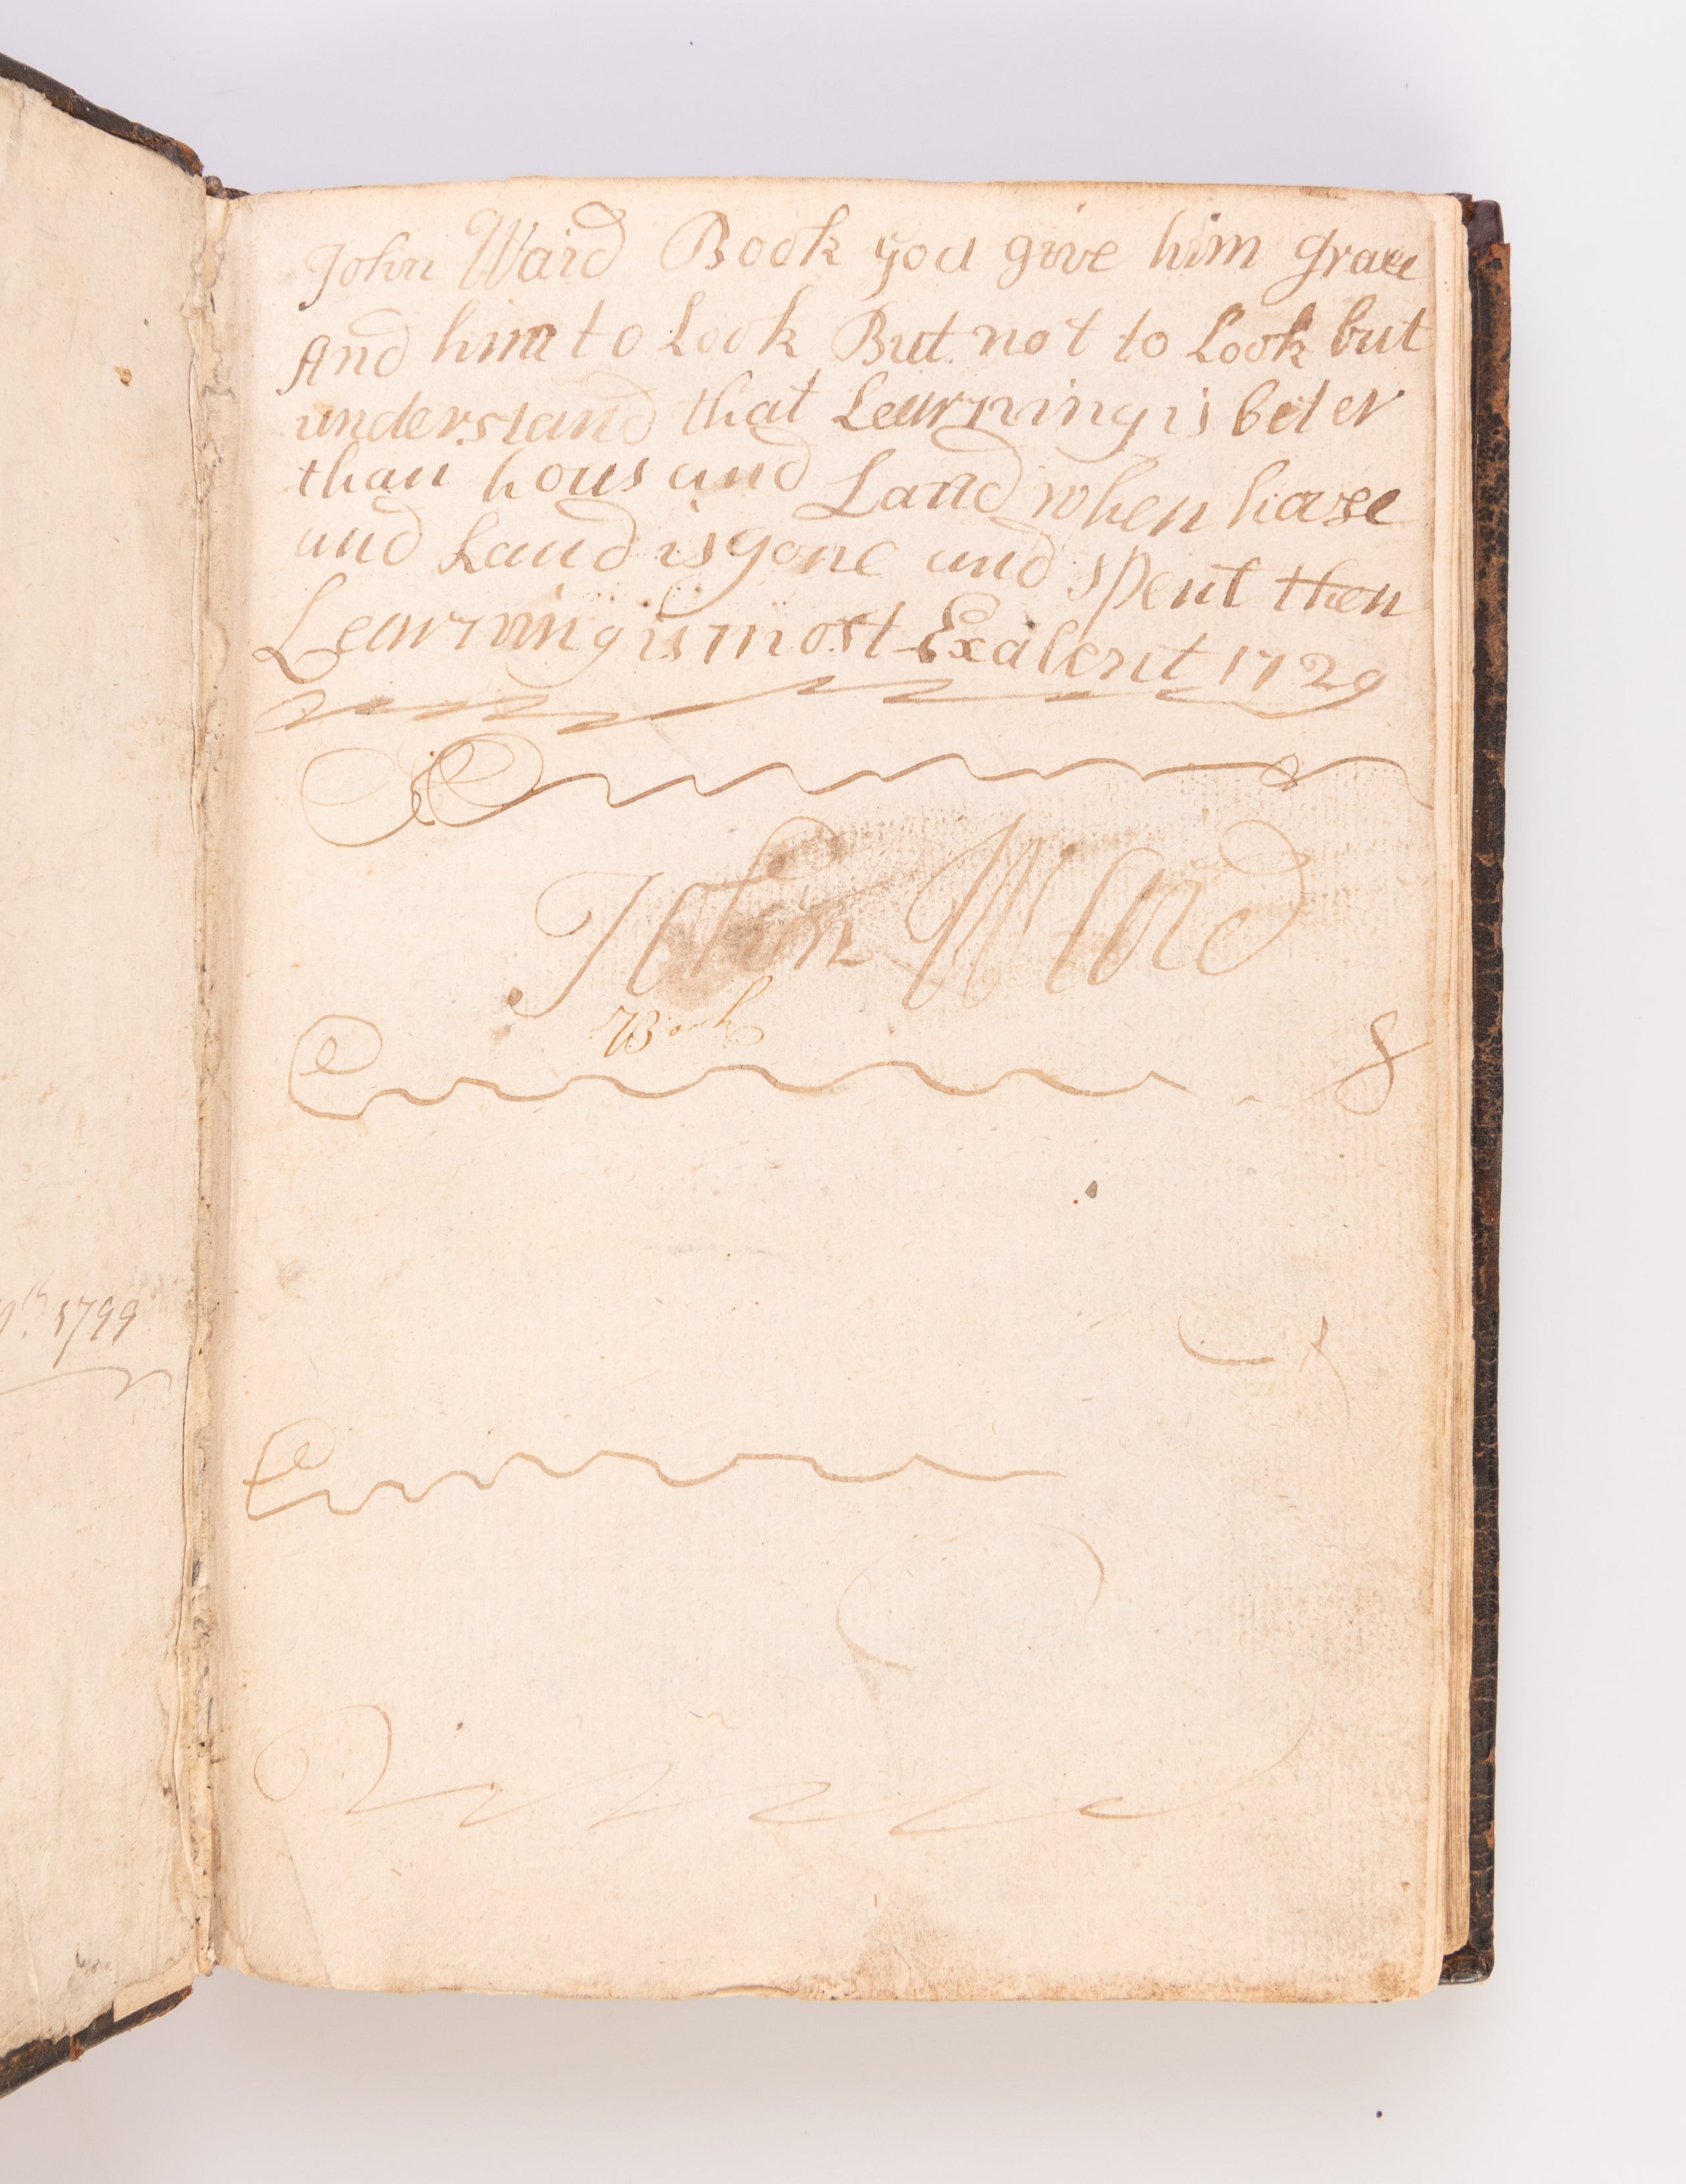 John Ward Book god give him grace
And him to Look But not to Look but
understand that Learning is beter
than hous and Land when house
and Land is gone and spent then
Learning is most Exalent 1729
John Ward
Book
th 1799